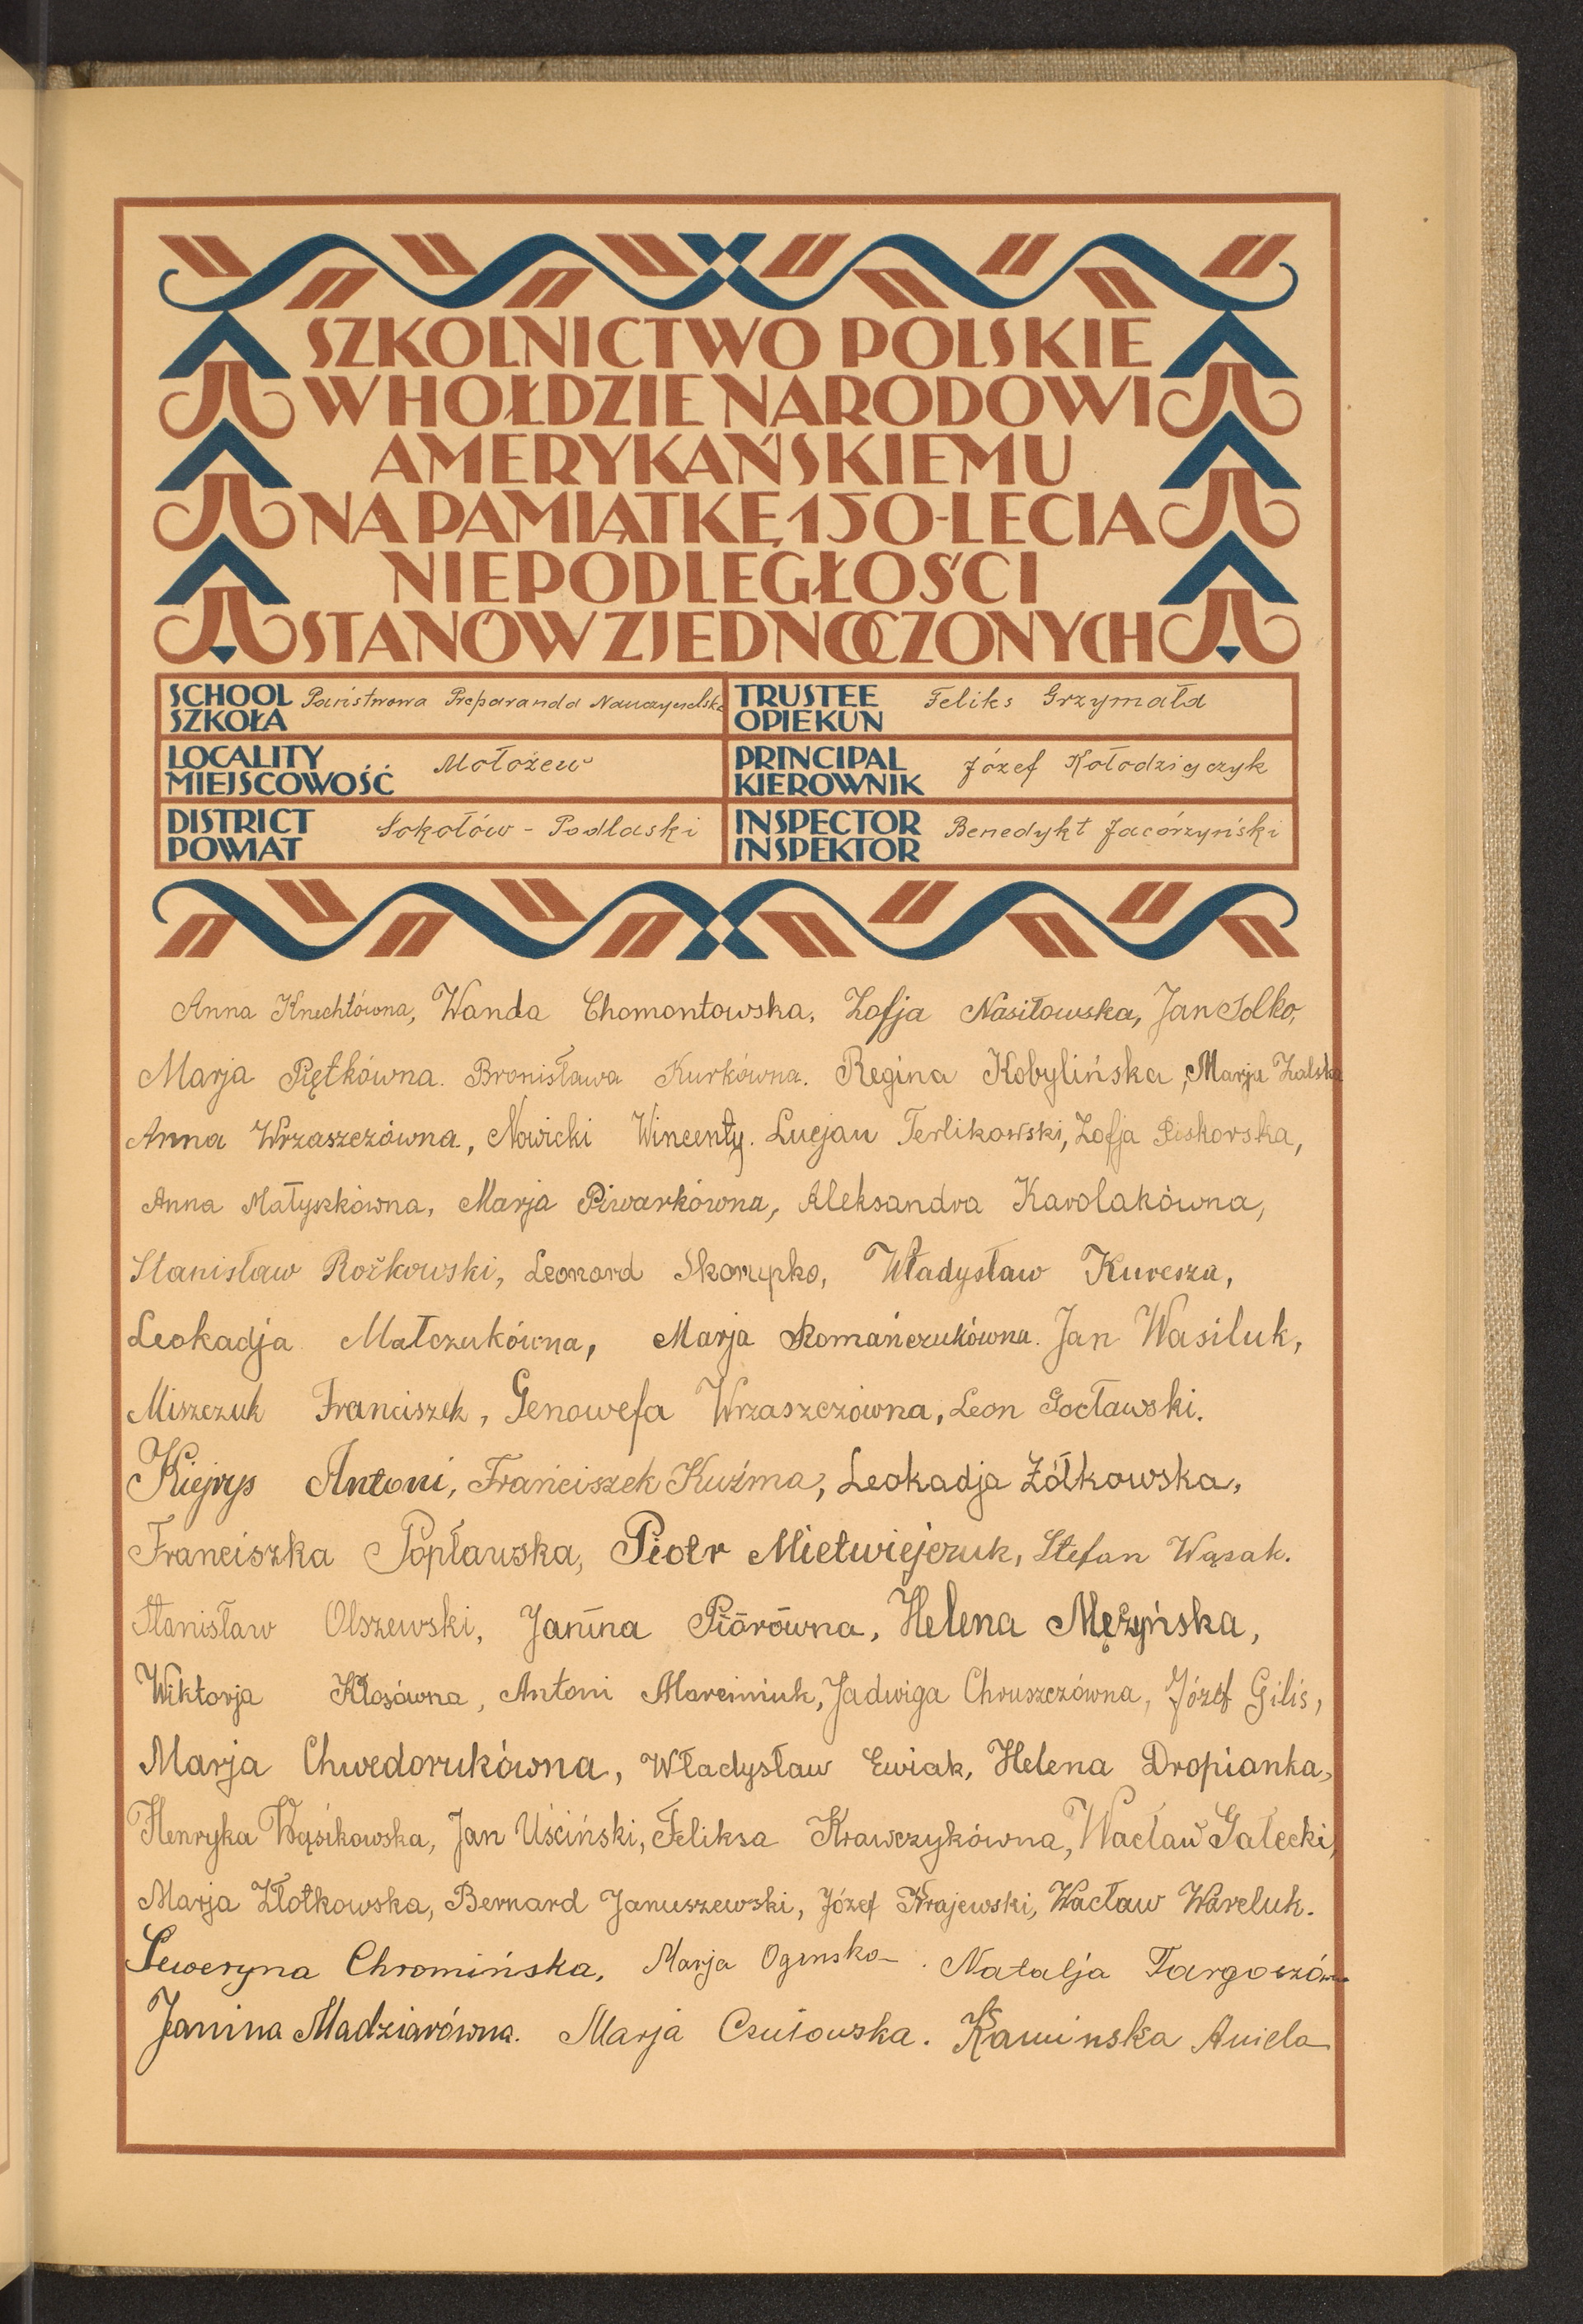 SZKOLNICTWO POLSKIE
W HOŁDZIE NARODOWI
AMERYKAŃSKIEMU
NA PAMIĄTKĘ 150-LECIA
NIEPODLEGŁOŚCI
STANÓW ZJEDNOCZONYCH
SCHOOL SZKOŁA Państwowa Preparanda Nauczycielska
TRUSTEE OPIEKUN Feliks Grzymała
LOCALITY MIEJSCOWOŚĆ Mołożew
PRINCIPAL KIEROWNIK Józef Kołodziejczyk
DISTRICT POWIAT Sokołów - Podlaski
INSPECTOR INSPEKTOR Benedykt Jacórzyński
Anna Knechtówna, Wanda Chomontowska, Zofja Nasiłowska, Jan Solko,
Marja Piętkówna. Bronisława Kurkówna. Regina Kobylińska, Marja Zalska
Anna Wrzaszczówna, Nowicki Wincenty. Lucjan Terlikowski, Zofja Piskorska,
Anna Małyszkówna, Marja Piwarkówna, Aleksandra Karolakówna,
Stanisław Rožkowski, Leonard Skorupko, Władysław Kuresza,
Leokadja Małczukówna, Marja Romańczukówna. Jan Wasiluk,
Miszczuk Franciszek, Genowefa Wrzaszczówna, Leon Gocławski.
Kiejrys Antoni, Franciszek Kuźma, Leokadja Żółkowska,
Franciszka Popławska, Piotr Mietwiejczuk, Stefan Wąsak.
Stanisław Olszewski, Janina Piórówna, Helena Mężyńska,
Wiktorja Kłosówna, Antoni Marciniuk, Jadwiga Chruszczówna, Józef Gilis,
Marja Chwedorukówna, Władysław Ewiak, Helena Dropianka,
Henryka Wąsikowska, Jan Uściński, Feliksa Krawczykówna, Wacław Gałecki,
Marja Złotkowska, Bernard Januszewski, Józef Krajewski, Wacław Wareluk.
Seweryna Chromińska, Marja Oginska. Natalja
Janina Madziarówna. Marja Czuiowska. Kaminska Aniela